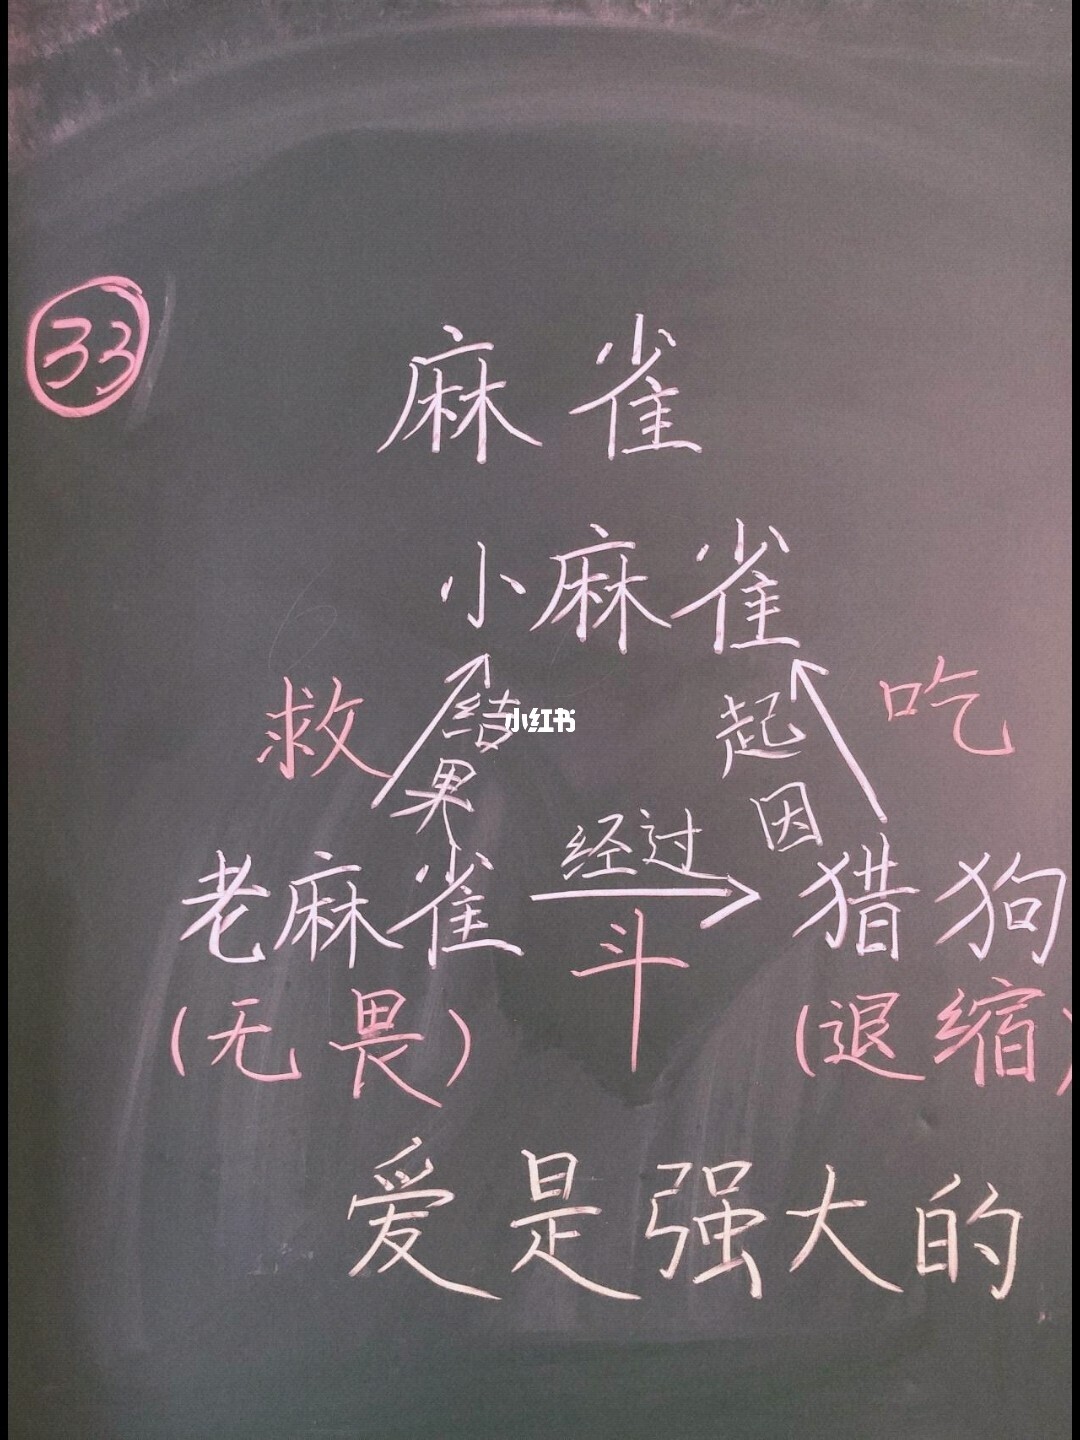 33
麻雀
小麻雀
救 结果 小红书 起因 吃
经过
老麻雀 猎狗
斗
(无畏) (退缩)
爱是强大的